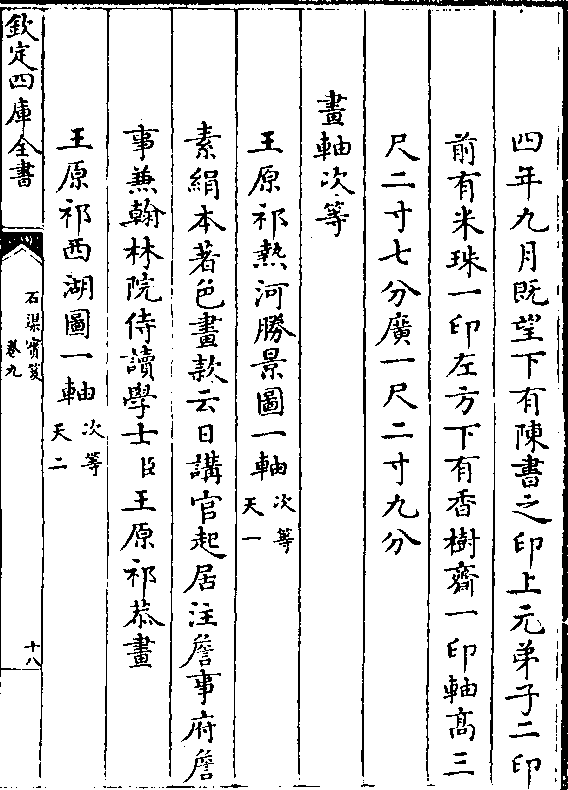 四年九月既望下有陳書之印上元弟子二印
前有米珠一印左方下有香樹齋一印軸髙三
尺二寸七分廣一尺二寸九分
畫軸次等
王原祁熱河勝景圖一軸次等天一
素絹本著色畫款云日講官起居注詹事府詹
事兼翰林院侍讀學士臣王原祁恭畫
王原祁西湖圖一軸次等天二
欽定四庫全書
石渠寳笈
卷九
十八